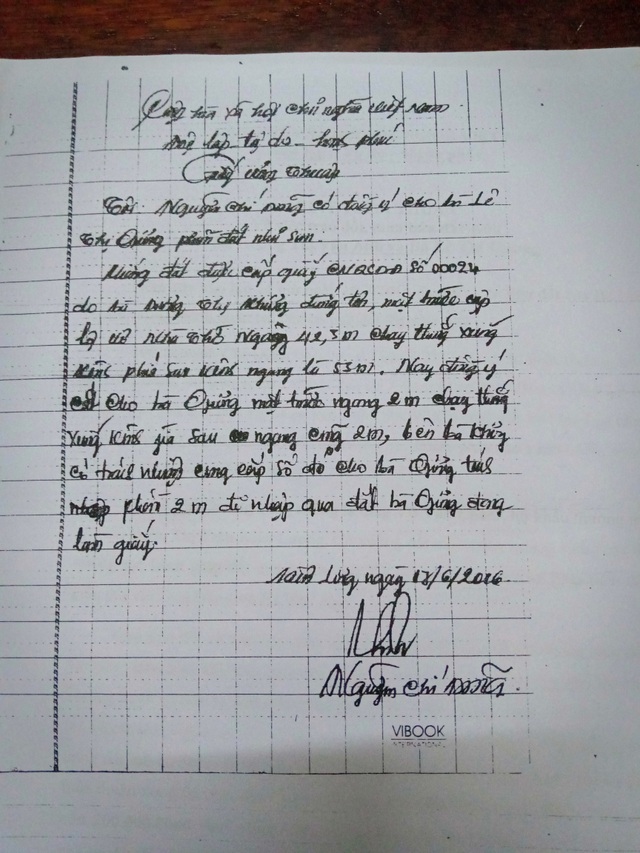 Cộng hòa xã hội chủ nghĩa việt nam
Độc lập tự do hạnh phúc
Giấy
Tôi Nguyễn Chí có đồng ý cho bà Lê
Thị Quảng phần đất như sau.
đất được cấp quyền CNQSDĐ Số 00024
do bà Dương Thị Khứng đứng tên, mặt trước cặp
lộ ngang 42,3m chạy thẳng xuống
kinh phía sau kinh ngang là 53m. Nay đồng ý
cho bà Quảng mặt trước ngang 2m chạy thẳng
xuống kinh phía sau ngang cũng 2m, bên bà Khứng
có trách nhiệm cung cấp sổ đỏ cho bà Quảng tách
phần 2m để nhập qua đất bà Quảng đang
làm giấy.
ngày /6/2016
Nguyễn Chí
VIBOOK
INTERNATIONAL